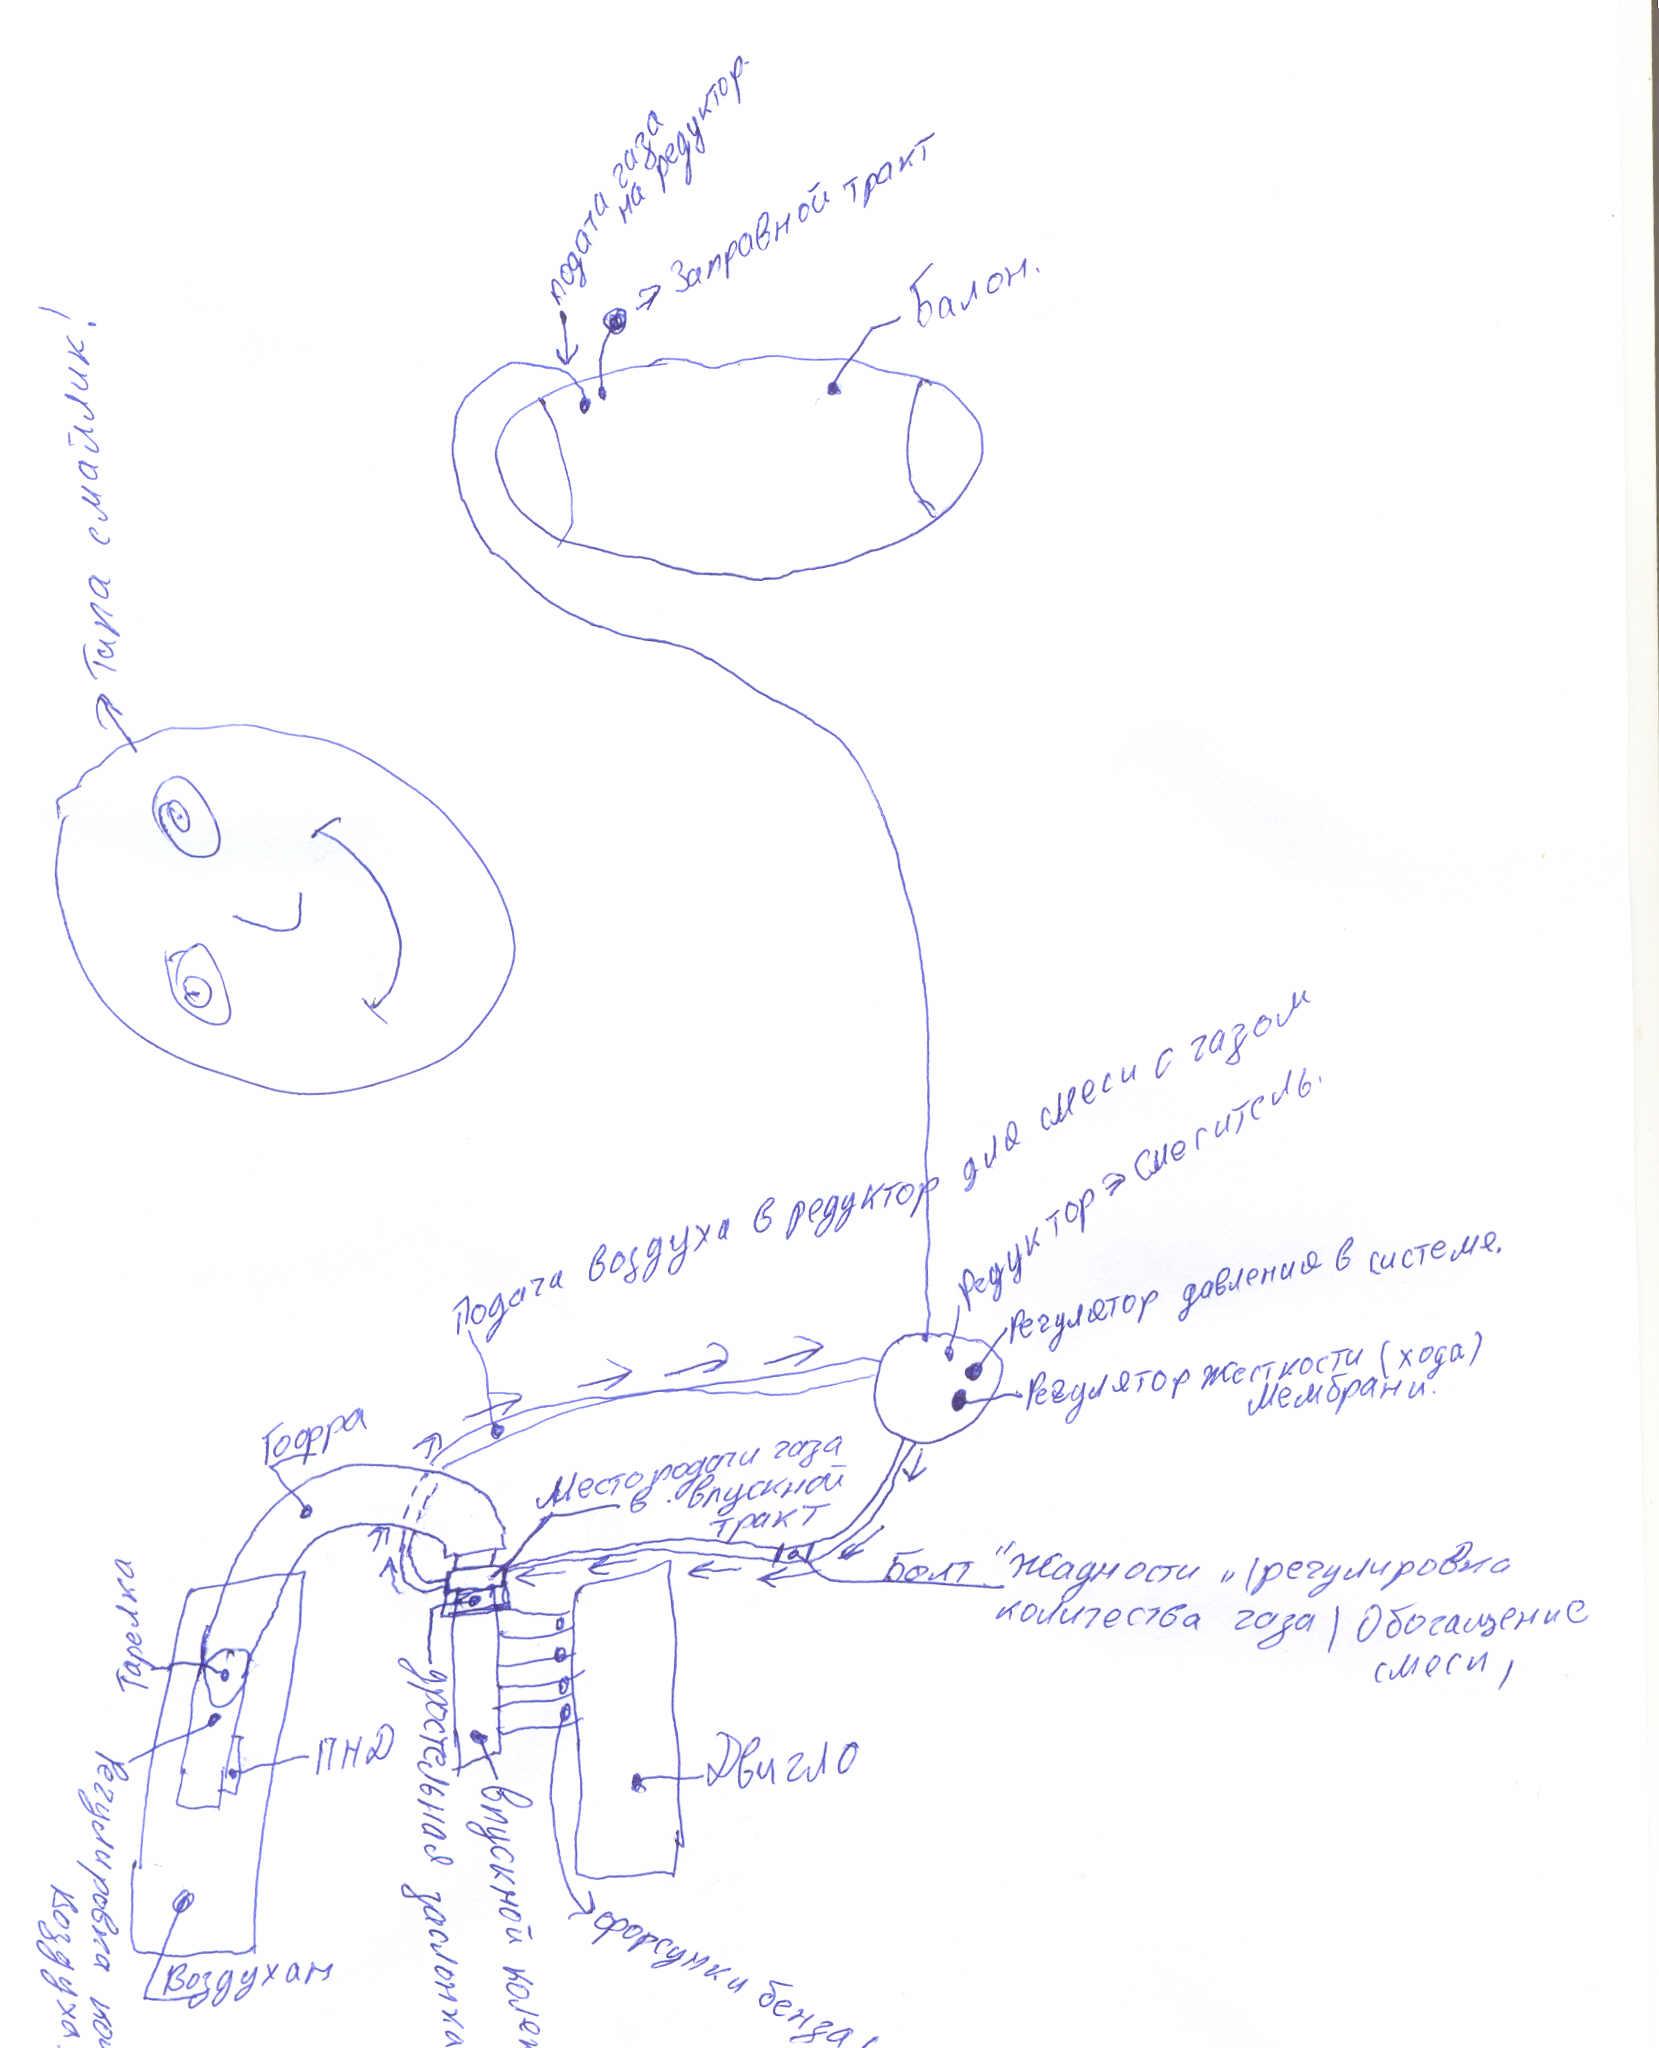 подача газа
на редуктор.
Заправной тракт
Балон.
Типа смайлик!
Подача воздуха в редуктор для смеси с газом
Редуктор → смеситель.
Регулятор давления в системе.
Регулятор жесткости (хода)
мембрани.
Гофра
Место подачи газа
в впускной
тракт
Болт "Жадности„ (регулировка
количества газа) Обогащение
смеси,
Тарелка
ПНД
Двигло
дросельная заслонка
впускной колен
форсунки бенза
Регулировка
воздуха.
Воздухан